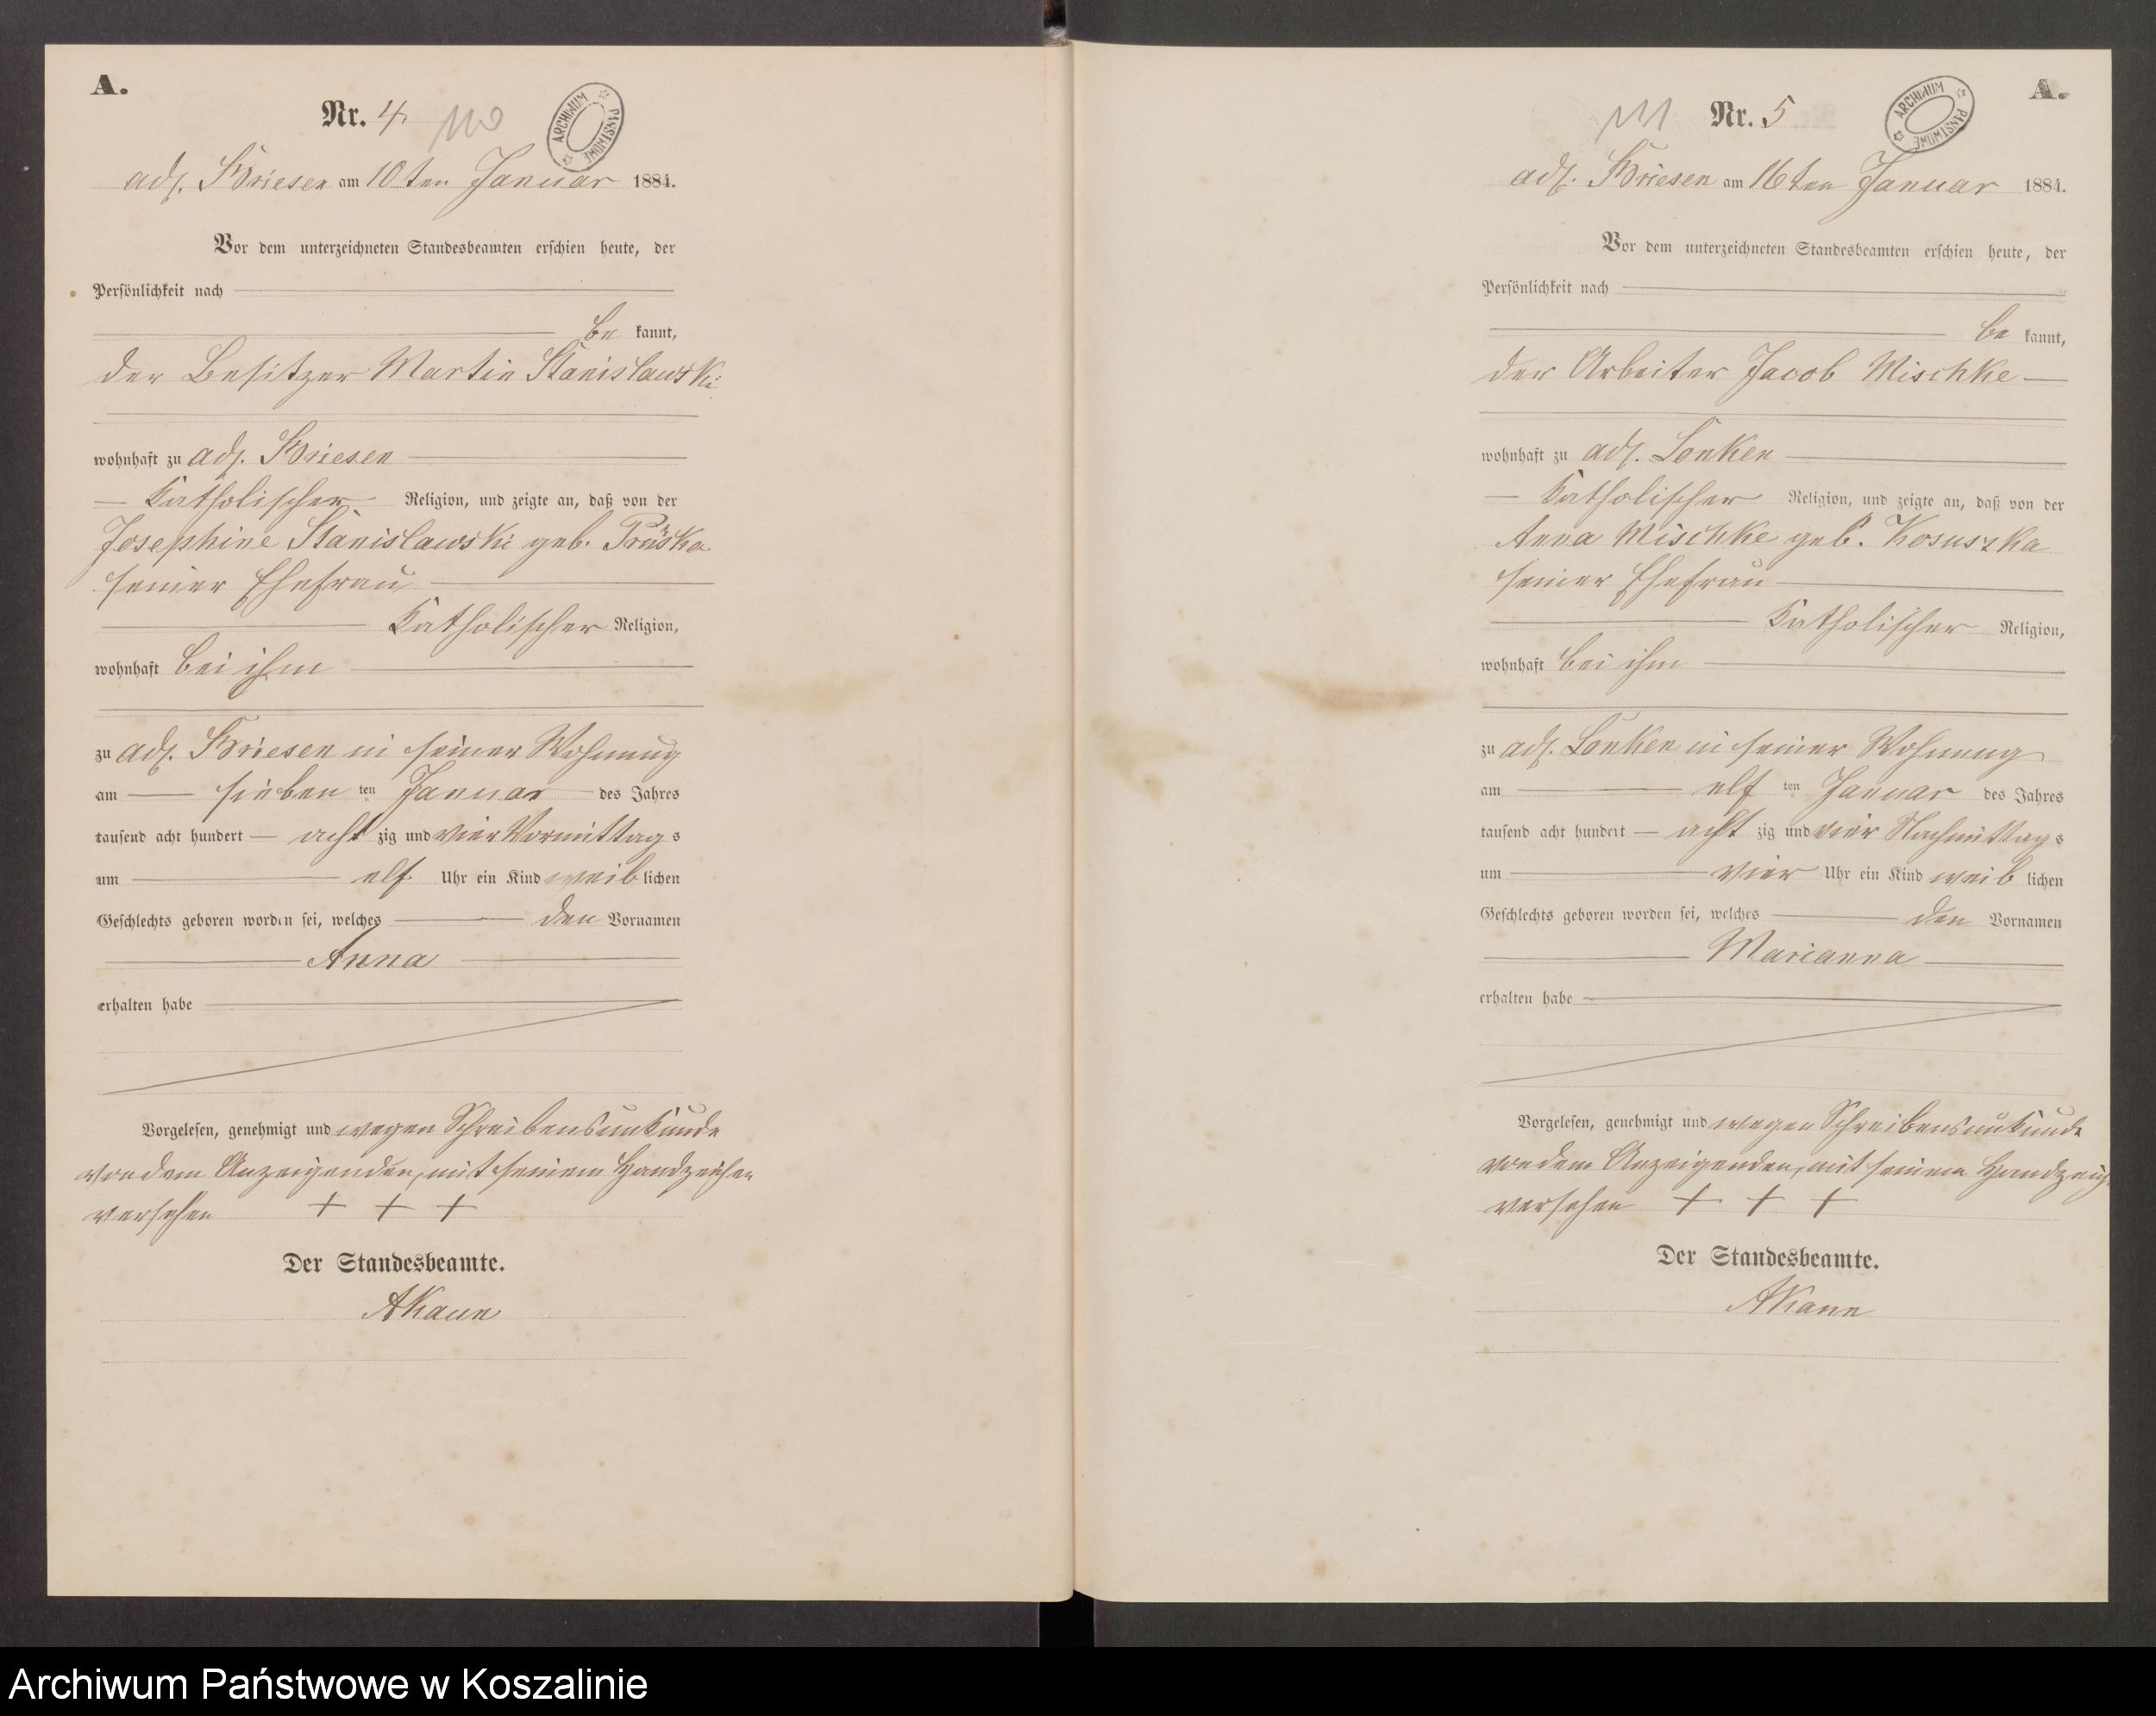 A.
Nr. 4.
110
ARCHIWUM PAŃSTWOWE
adl. Briesen am 10ten Januar 1884.
Vor dem unterzeichneten Standesbeamten erschien heute, der
Persönlichkeit nach
be kannt,
der Besitzer Martin Stanislawski
wohnhaft zu adl. Briesen
Katholischer Religion, und zeigte an, daß von der
Josephine Stanislawski geb. Pruska
seiner Ehefrau
Katholischer Religion,
wohnhaft bei ihm
zu adl. Briesen in seiner Wohnung
am sieben ten Januar des Jahres
tausend acht hundert acht zig und vier Vormittag s
um elf Uhr ein Kind weib lichen
Geschlechts geboren worden sei, welches den Vornamen
Anna
erhalten habe
Vorgelesen, genehmigt und wegen Schreibensunkunde
von dem Anzeigenden, mit seinem Handzeichen
versehen + + +
Der Standesbeamte.
AKaun
A.
111
Nr. 5
ARCHIWUM PAŃSTWOWE
adl. Briesen am 16ten Januar 1884.
Vor dem unterzeichneten Standesbeamten erschien heute, der
Persönlichkeit nach
be kannt,
der Arbeiter Jacob Mischke
wohnhaft zu adl. Lonken
Katholischer Religion, und zeigte an, daß von der
Anna Mischke geb. Kosuszka
seiner Ehefrau
Katholischer Religion,
wohnhaft bei ihm
zu adl. Lonken in seiner Wohnung
am elf ten Januar des Jahres
tausend acht hundert acht zig und vier Nachmittag s
um vier Uhr ein Kind weib lichen
Geschlechts geboren worden sei, welches den Vornamen
Marianna
erhalten habe
Vorgelesen, genehmigt und wegen Schreibensunkunde
von dem Anzeigenden, mit seinem
versehen + + +
Der Standesbeamte.
AKaun
Archiwum Państwowe w Koszalinie